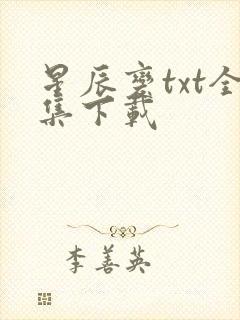 星辰变txt全
集下载
李善英